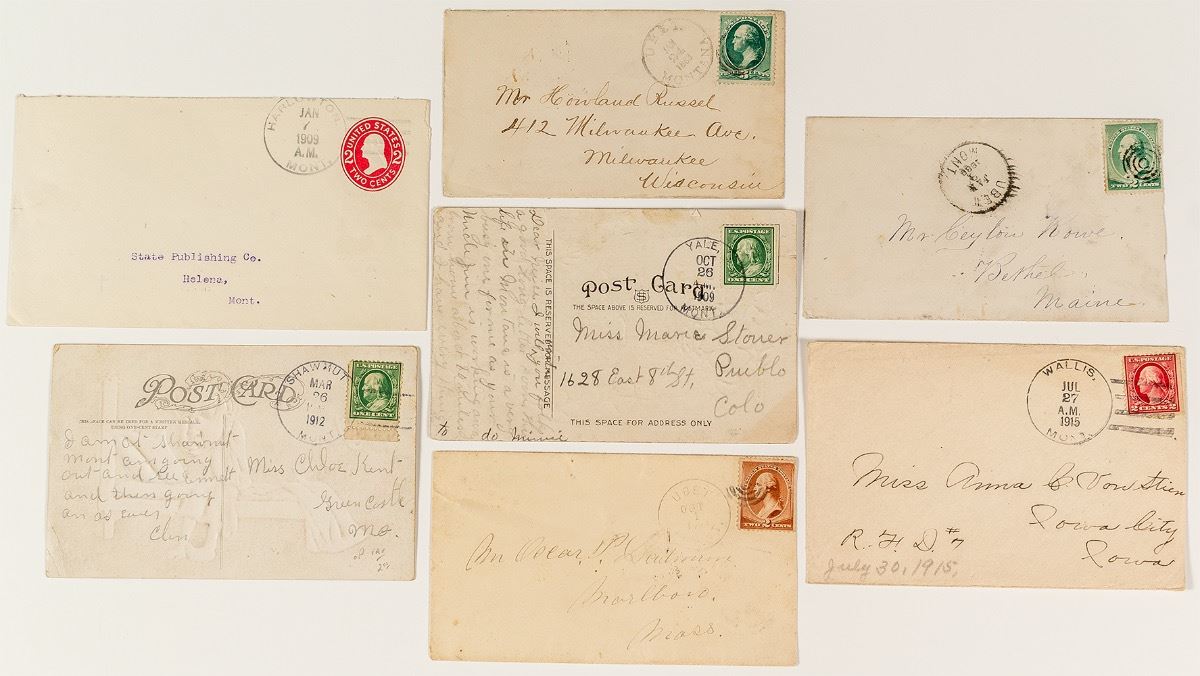 HARLOWTON
JAN
7
1909
A.M.
MONT.
UNITED STATES
2 2
TWO CENTS
State Publishing Co.
Helena,
Mont.
UBET
MONTANA
Mr Howland Russel
412 Milwaukee Ave.
Milwaukee
Wisconsin
UBET
JAN
MONT
Mr Ceylon Rowe.
Bethel,
Maine
Dear
I will you
a good long letter
life in Montana is a very
busy one for me as yours
THIS SPACE IS RESERVED FOR MESSAGE
YALE,
OCT
26
A.M.
1909
MONT.
U.S. POSTAGE
ONE CENT
Post Card
THE SPACE ABOVE IS RESERVED FOR POSTMARK
Miss Marie Stoner
1628 East 8th St,
Pueblo
Colo
THIS SPACE FOR ADDRESS ONLY
to do Minnie
POST CARD
THIS SPACE CAN BE USED FOR A WRITTEN MESSAGE.
USING ONE-CENT STAMP
SHAWMUT
MAR
26
1912
MONT.
U.S. POSTAGE
ONE CENT
I am at Shawmut
Mont am going
out and see Emmett
and then going
on as ever
Clem
Miss Chloe Kent
Green Castle
Mo.
UBET
OCT
TWO CENTS
Mr Oscar
Marlboro.
Mass.
WALLIS,
JUL
27
A.M.
1915
MONT.
U.S. POSTAGE
2 CENTS 2
Miss Anna C. Von Stien
Iowa City
R. F. D. #7
Iowa
July 30, 1915.